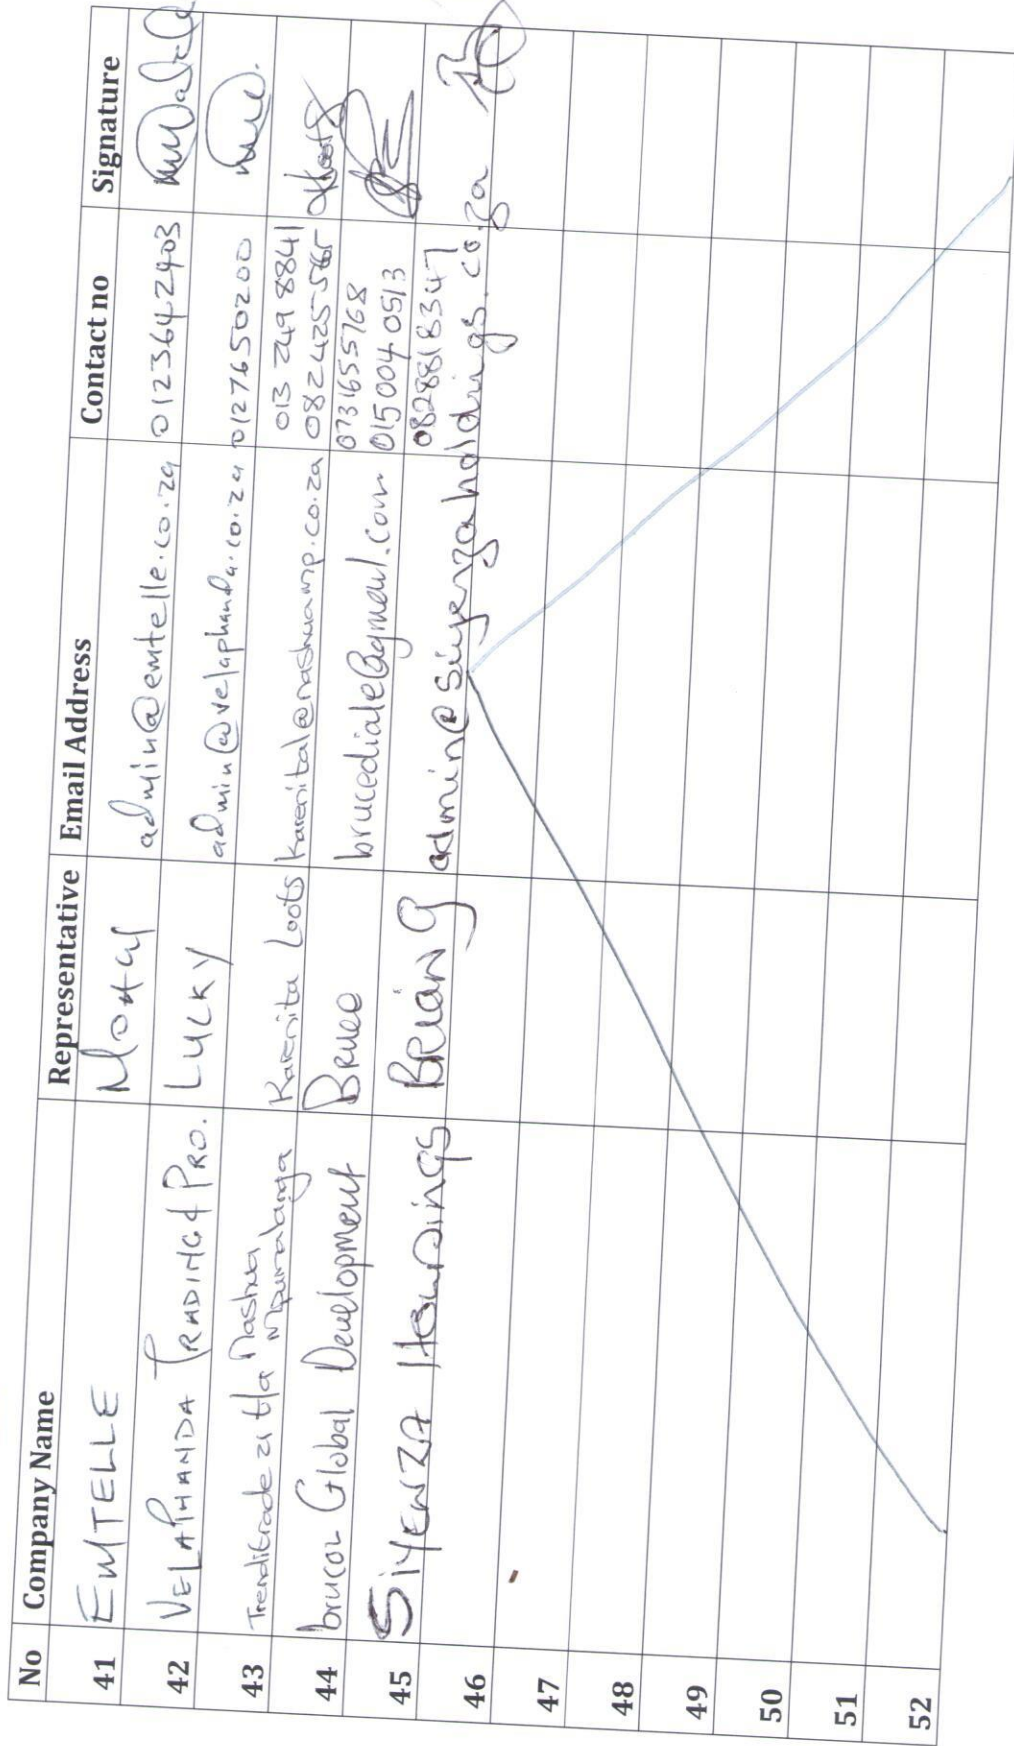 No Company Name Representative Email Address Contact no Signature
41 EMTELLE admin@emtelle.co.za 0123642403
42 VELAPHANDA TRADING & PRO. LUCKY admin@velaphanda.co.za 0127650200
43 Trenditrade 21 t/a Nashua Mpumalanga Karenita Loots karenital@nashuamp.co.za 013 249 8841
082 425 5565
44 brucol Global Development Bruce brucediale@gmail.com 0731655768
015004 0513
45 SIYENZA HOLDINGS BRIAN G admin@siyenzaholdings.co.za 0828818347
46
47
48
49
50
51
52